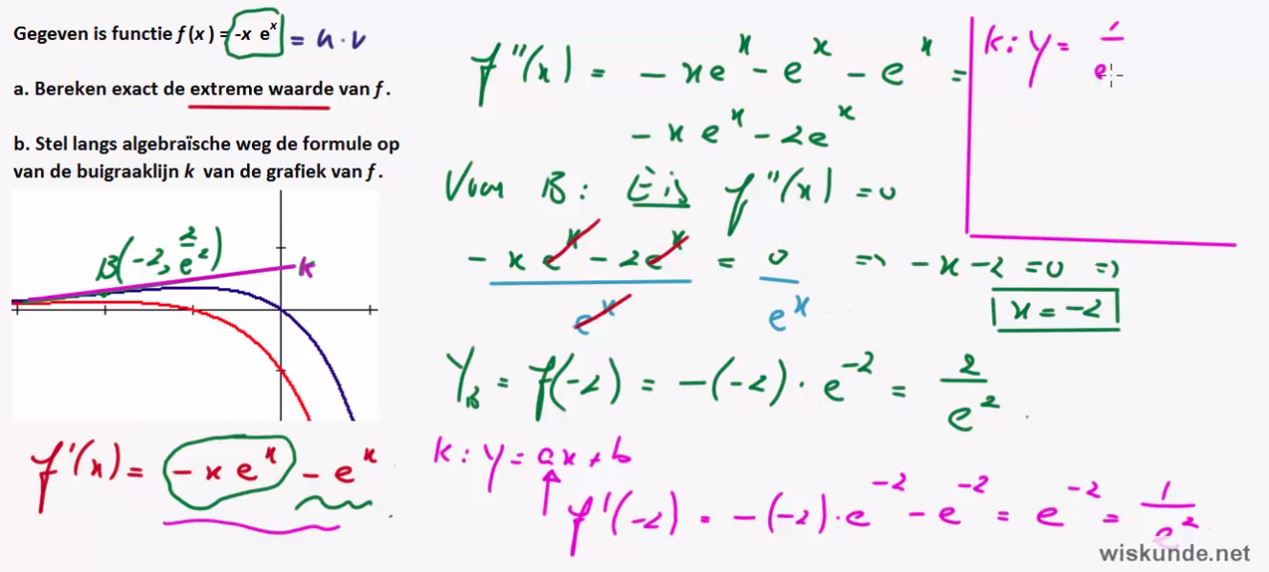 Gegeven is functie f(x) = -x eˣ = u·v
a. Bereken exact de extreme waarde van f.
b. Stel langs algebraïsche weg de formule op
van de buigraaklijn k van de grafiek van f.
B(-2, 2/e²)
k
f'(x) = -x eˣ - eˣ.
f''(x) = -xeˣ - eˣ - eˣ =
-x eˣ - 2eˣ
Voor B: Eis f''(x) = 0
-x eˣ - 2eˣ / eˣ = 0 / eˣ => -x - 2 = 0 =>
x = -2
y_B = f(-2) = -(-2) · e⁻² = 2/e².
k: y = ax + b
f'(-2) = -(-2)·e⁻² - e⁻² = e⁻² = 1/e²
k: y = 1/e
wiskunde.net